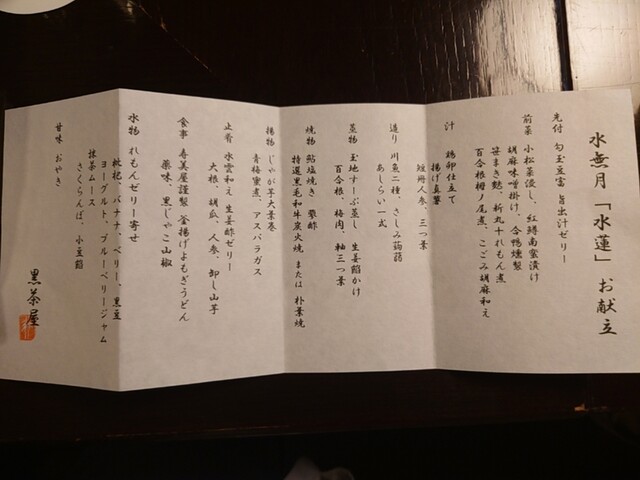 水無月「水蓮」お献立
先付 勾玉豆富 旨出汁ゼリー
前菜 小松菜浸し、紅鱒南蛮漬け
胡麻味噌掛け、合鴨燻製
笹まき麩、新丸十れもん煮
百合根梅ノ尾煮、こごみ胡麻和え
汁 鶏卵仕立て
揚げ真薯
短冊人参、三つ葉
造り 川魚二種、さしみ蒟蒻
あしらい一式
蒸物 玉地すーぷ蒸し 生姜餡かけ
百合根、梅肉、軸三つ葉
焼物 鮎塩焼き 蓼酢
特選黒毛和牛炭火焼 または 朴葉焼
揚物 じゃが芋大葉巻
青梅蜜煮、アスパラガス
止肴 水雲和え 生姜酢ゼリー
大根、胡瓜、人参、卸し山芋
食事 寿美屋謹製 釜揚げよもぎうどん
薬味、黒じゃこ山椒
水物 れもんゼリー寄せ
枇杷、バナナ、ベリー、黒豆
ヨーグルト、ブルーベリージャム
抹茶ムース
さくらんぼ、小豆餡
甘味 おやき
黒茶屋